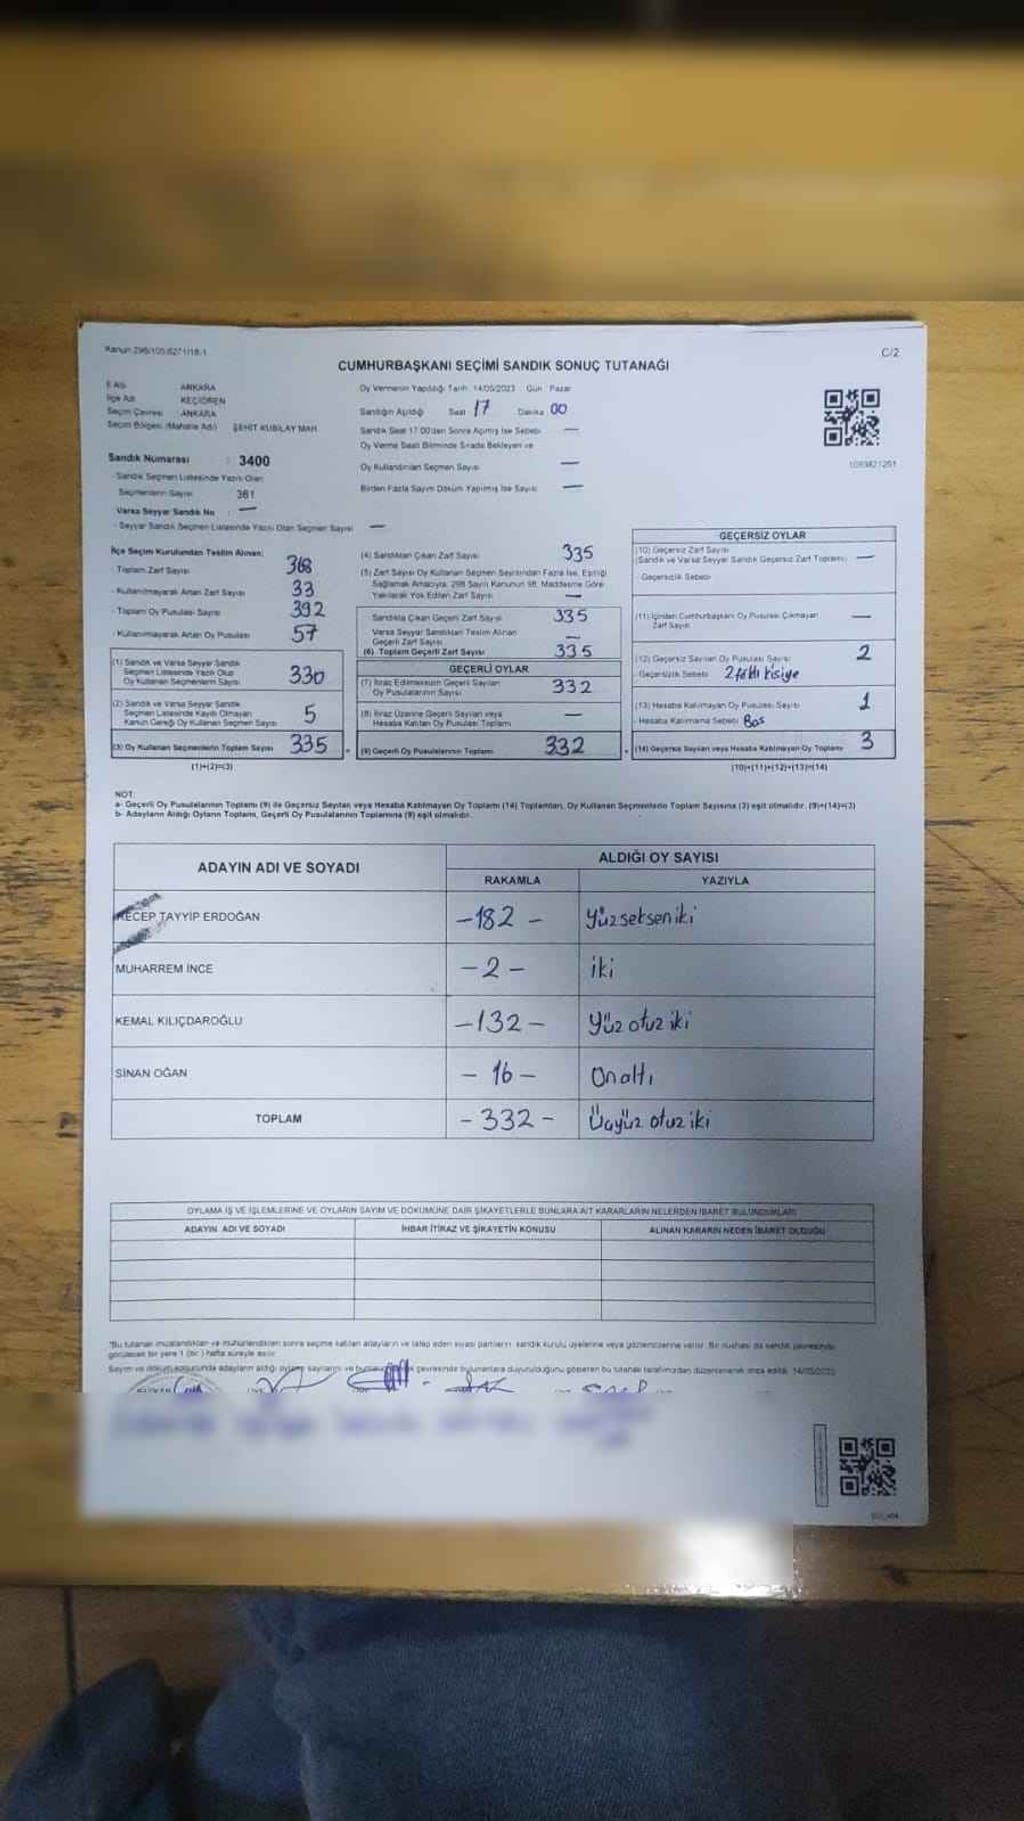 Kanun 298/105;6271/18-1
C/2
CUMHURBAŞKANI SEÇİMİ SANDIK SONUÇ TUTANAĞI
İl Adı ANKARA
İlçe Adı KEÇİÖREN
Seçim Çevresi ANKARA
Seçim Bölgesi (Mahalle Adı) ŞEHİT KUBİLAY MAH.
Sandık Numarası : 3400
- Sandık Seçmen Listesinde Yazılı Olan
Seçmenlerin Sayısı 361
Varsa Seyyar Sandık No : —
- Seyyar Sandık Seçmen Listesinde Yazılı Olan Seçmen Sayısı —
Oy Vermenin Yapıldığı Tarih 14/05/2023 Gün Pazar
Sandığın Açıldığı Saat 17 Dakika 00
Sandık Saat 17.00'den Sonra Açılmış İse Sebebi —
Oy Verme Saati Bitiminde Sırada Bekleyen ve
Oy Kullandırılan Seçmen Sayısı —
Birden Fazla Sayım Döküm Yapılmış İse Sayısı —
İlçe Seçim Kurulundan Teslim Alınan:
- Toplam Zarf Sayısı 368
- Kullanılmayarak Artan Zarf Sayısı 33
- Toplam Oy Pusulası Sayısı 392
- Kullanılmayarak Artan Oy Pusulası 57
(1) Sandık ve Varsa Seyyar Sandık
Seçmen Listesinde Yazılı Olup
Oy Kullanan Seçmenlerin Sayısı 330
(2) Sandık ve Varsa Seyyar Sandık
Seçmen Listesinde Kayıtlı Olmayan
Kanun Gereği Oy Kullanan Seçmen Sayısı 5
(3) Oy Kullanan Seçmenlerin Toplam Sayısı 335
(1)+(2)=(3)
(4) Sandıktan Çıkan Zarf Sayısı 335
(5) Zarf Sayısı Oy Kullanan Seçmen Sayısından Fazla İse, Eşitliği
Sağlamak Amacıyla, 298 Sayılı Kanunun 98. Maddesine Göre
Yakılarak Yok Edilen Zarf Sayısı —
Sandıkta Çıkan Geçerli Zarf Sayısı 335
Varsa Seyyar Sandıktan Teslim Alınan
Geçerli Zarf Sayısı —
(6) Toplam Geçerli Zarf Sayısı 335
GEÇERLİ OYLAR
(7) İtiraz Edilmeksizin Geçerli Sayılan
Oy Pusulalarının Sayısı 332
(8) İtiraz Üzerine Geçerli Sayılan veya
Hesaba Katılan Oy Pusulası Toplamı —
(9) Geçerli Oy Pusulalarının Toplamı 332
GEÇERSİZ OYLAR
(10) Geçersiz Zarf Sayısı
(Sandık ve Varsa Seyyar Sandık Geçersiz Zarf Toplamı) —
- Geçersizlik Sebebi
(11) İçinden Cumhurbaşkanı Oy Pusulası Çıkmayan
Zarf Sayısı —
(12) Geçersiz Sayılan Oy Pusulası Sayısı 2
- Geçersizlik Sebebi 2 farklı kişiye
(13) Hesaba Katılmayan Oy Pusulası Sayısı 1
- Hesaba Katılmama Sebebi Boş
(14) Geçersiz Sayılan veya Hesaba Katılmayan Oy Toplamı 3
(10)+(11)+(12)+(13)=(14)
NOT:
a- Geçerli Oy Pusulalarının Toplamı (9) ile Geçersiz Sayılan veya Hesaba Katılmayan Oy Toplamı (14) Toplamları, Oy Kullanan Seçmenlerin Toplam Sayısına (3) eşit olmalıdır. (9)+(14)=(3)
b- Adayların Aldığı Oyların Toplamı, Geçerli Oy Pusulalarının Toplamına (9) eşit olmalıdır.
ADAYIN ADI VE SOYADI
ALDIĞI OY SAYISI
RAKAMLA YAZIYLA
RECEP TAYYİP ERDOĞAN -182- Yüzseksen iki
MUHARREM İNCE -2- iki
KEMAL KILIÇDAROĞLU -132- Yüz otuz iki
SİNAN OĞAN -16- Onaltı
TOPLAM -332- Üçyüz otuz iki
OYLAMA İŞ VE İŞLEMLERİNE VE OYLARIN SAYIM VE DÖKÜMÜNE DAİR ŞİKAYETLERLE BUNLARA AİT KARARLARIN NELERDEN İBARET BULUNDUKLARI
ADAYIN ADI VE SOYADI İHBAR İTİRAZ VE ŞİKAYETİN KONUSU ALINAN KARARIN NEDEN İBARET OLDUĞU
*Bu tutanak imzalandıktan ve mühürlendikten sonra seçime katılan adayların ve talep eden siyasi partilerin sandık kurulu üyelerine veya gözlemcilerine verilir. Bir nüshası da sandık çevresinde
görülecek bir yere 1 (bir) hafta süreyle asılır.
Sayım ve döküm sonucunda adayların aldığı oyların sayılarını ve çevresinde bulunanlara duyurulduğunu gösteren bu tutanak tarafımızdan düzenlenerek imza edildi. 14/05/2023